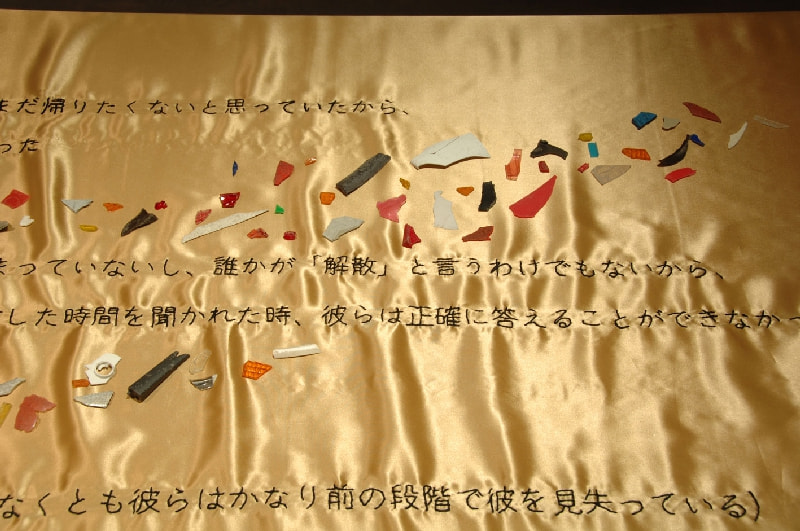 まだ帰りたくないと思っていたから、
った
まっていないし、誰かが「解散」と言うわけでもないから、
した時間を聞かれた時、彼らは正確に答えることができなかっ
なくとも彼らはかなり前の段階で彼を見失っている)